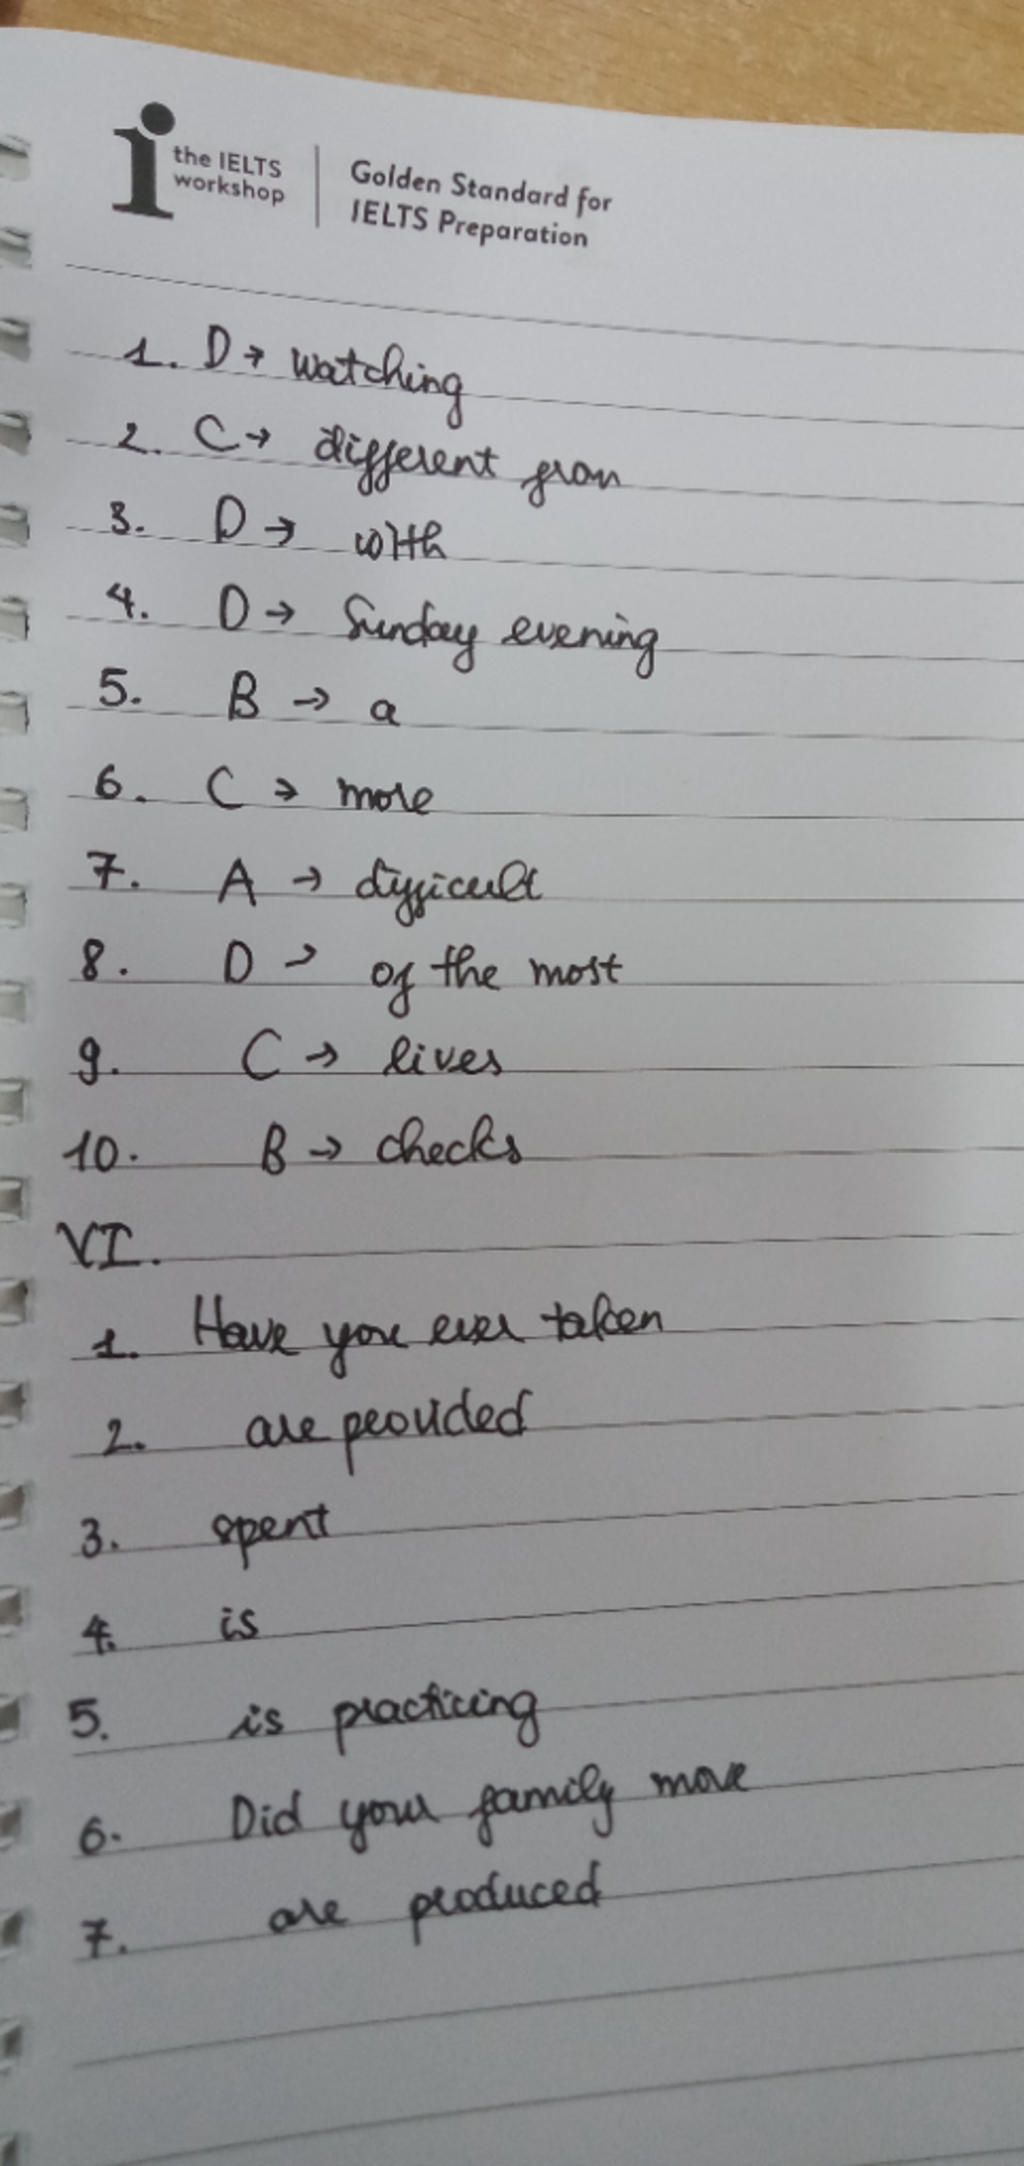 the IELTS
workshop
Golden Standard for
IELTS Preparation
1. D → watching
2. C → different from
3. D → with
4. D → Sunday evening
5. B → a
6. C → more
7. A → difficult
8. D → of the most
9. C → lives
10. B → checks
VI.
1. Have you ever taken
2. are provided
3. spent
4. is
5. is practicing
6. Did your family move
7. are produced